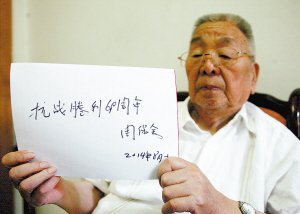 抗战勝利69周年
周
2014年8月